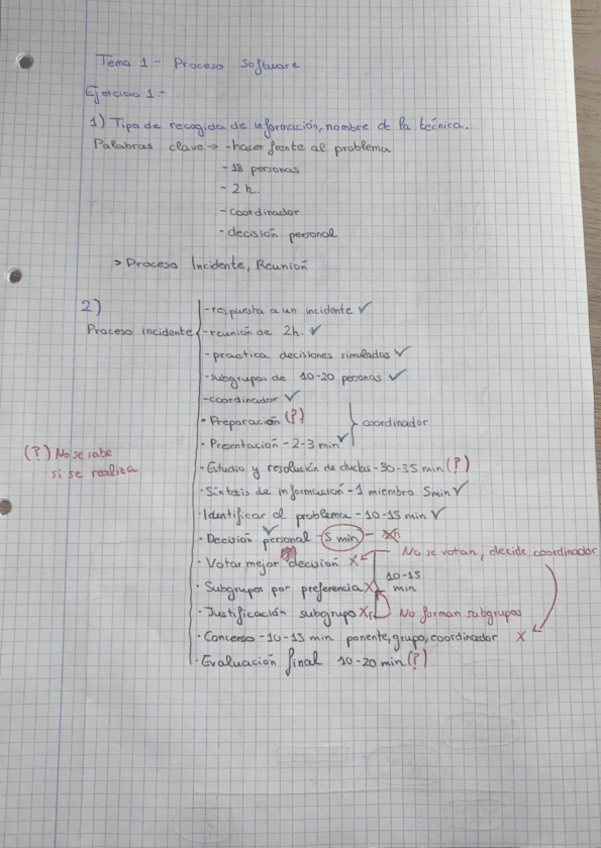 Tema 1 - Proceso Software
Ejercicio 1-
1) Tipo de recogida de información, nombre de la técnica.
Palabras clave → - hacer frente al problema
- 18 personas
- 2 h.
- coordinador
- decisión personal
> Proceso Incidente, Reunión
2)
Proceso incidente
- respuesta a un incidente ✓
- reunión de 2h. ✓
- practica decisiones simuladas ✓
- subgrupos de 10-20 personas ✓
- coordinador ✓
· Preparación (?)
coordinador
· Presentación - 2-3 min ✓
(?) No se sabe
si se realiza
· Estudio y resolución de dudas - 30-35 min (?)
· Síntesis de información - 1 miembro 5min ✓
· Identificar el problema - 10-15 min ✓
· Decisión personal - 5 min - ✓
· Votar mejor decisión X
No se votan, decide coordinador
10-15
min
· Subgrupos por preferencia X
· Justificación subgrupo X
No forman subgrupos
· Concenso - 10-15 min ponente, grupo, coordinador X
· Evaluación final 10-20 min (?)